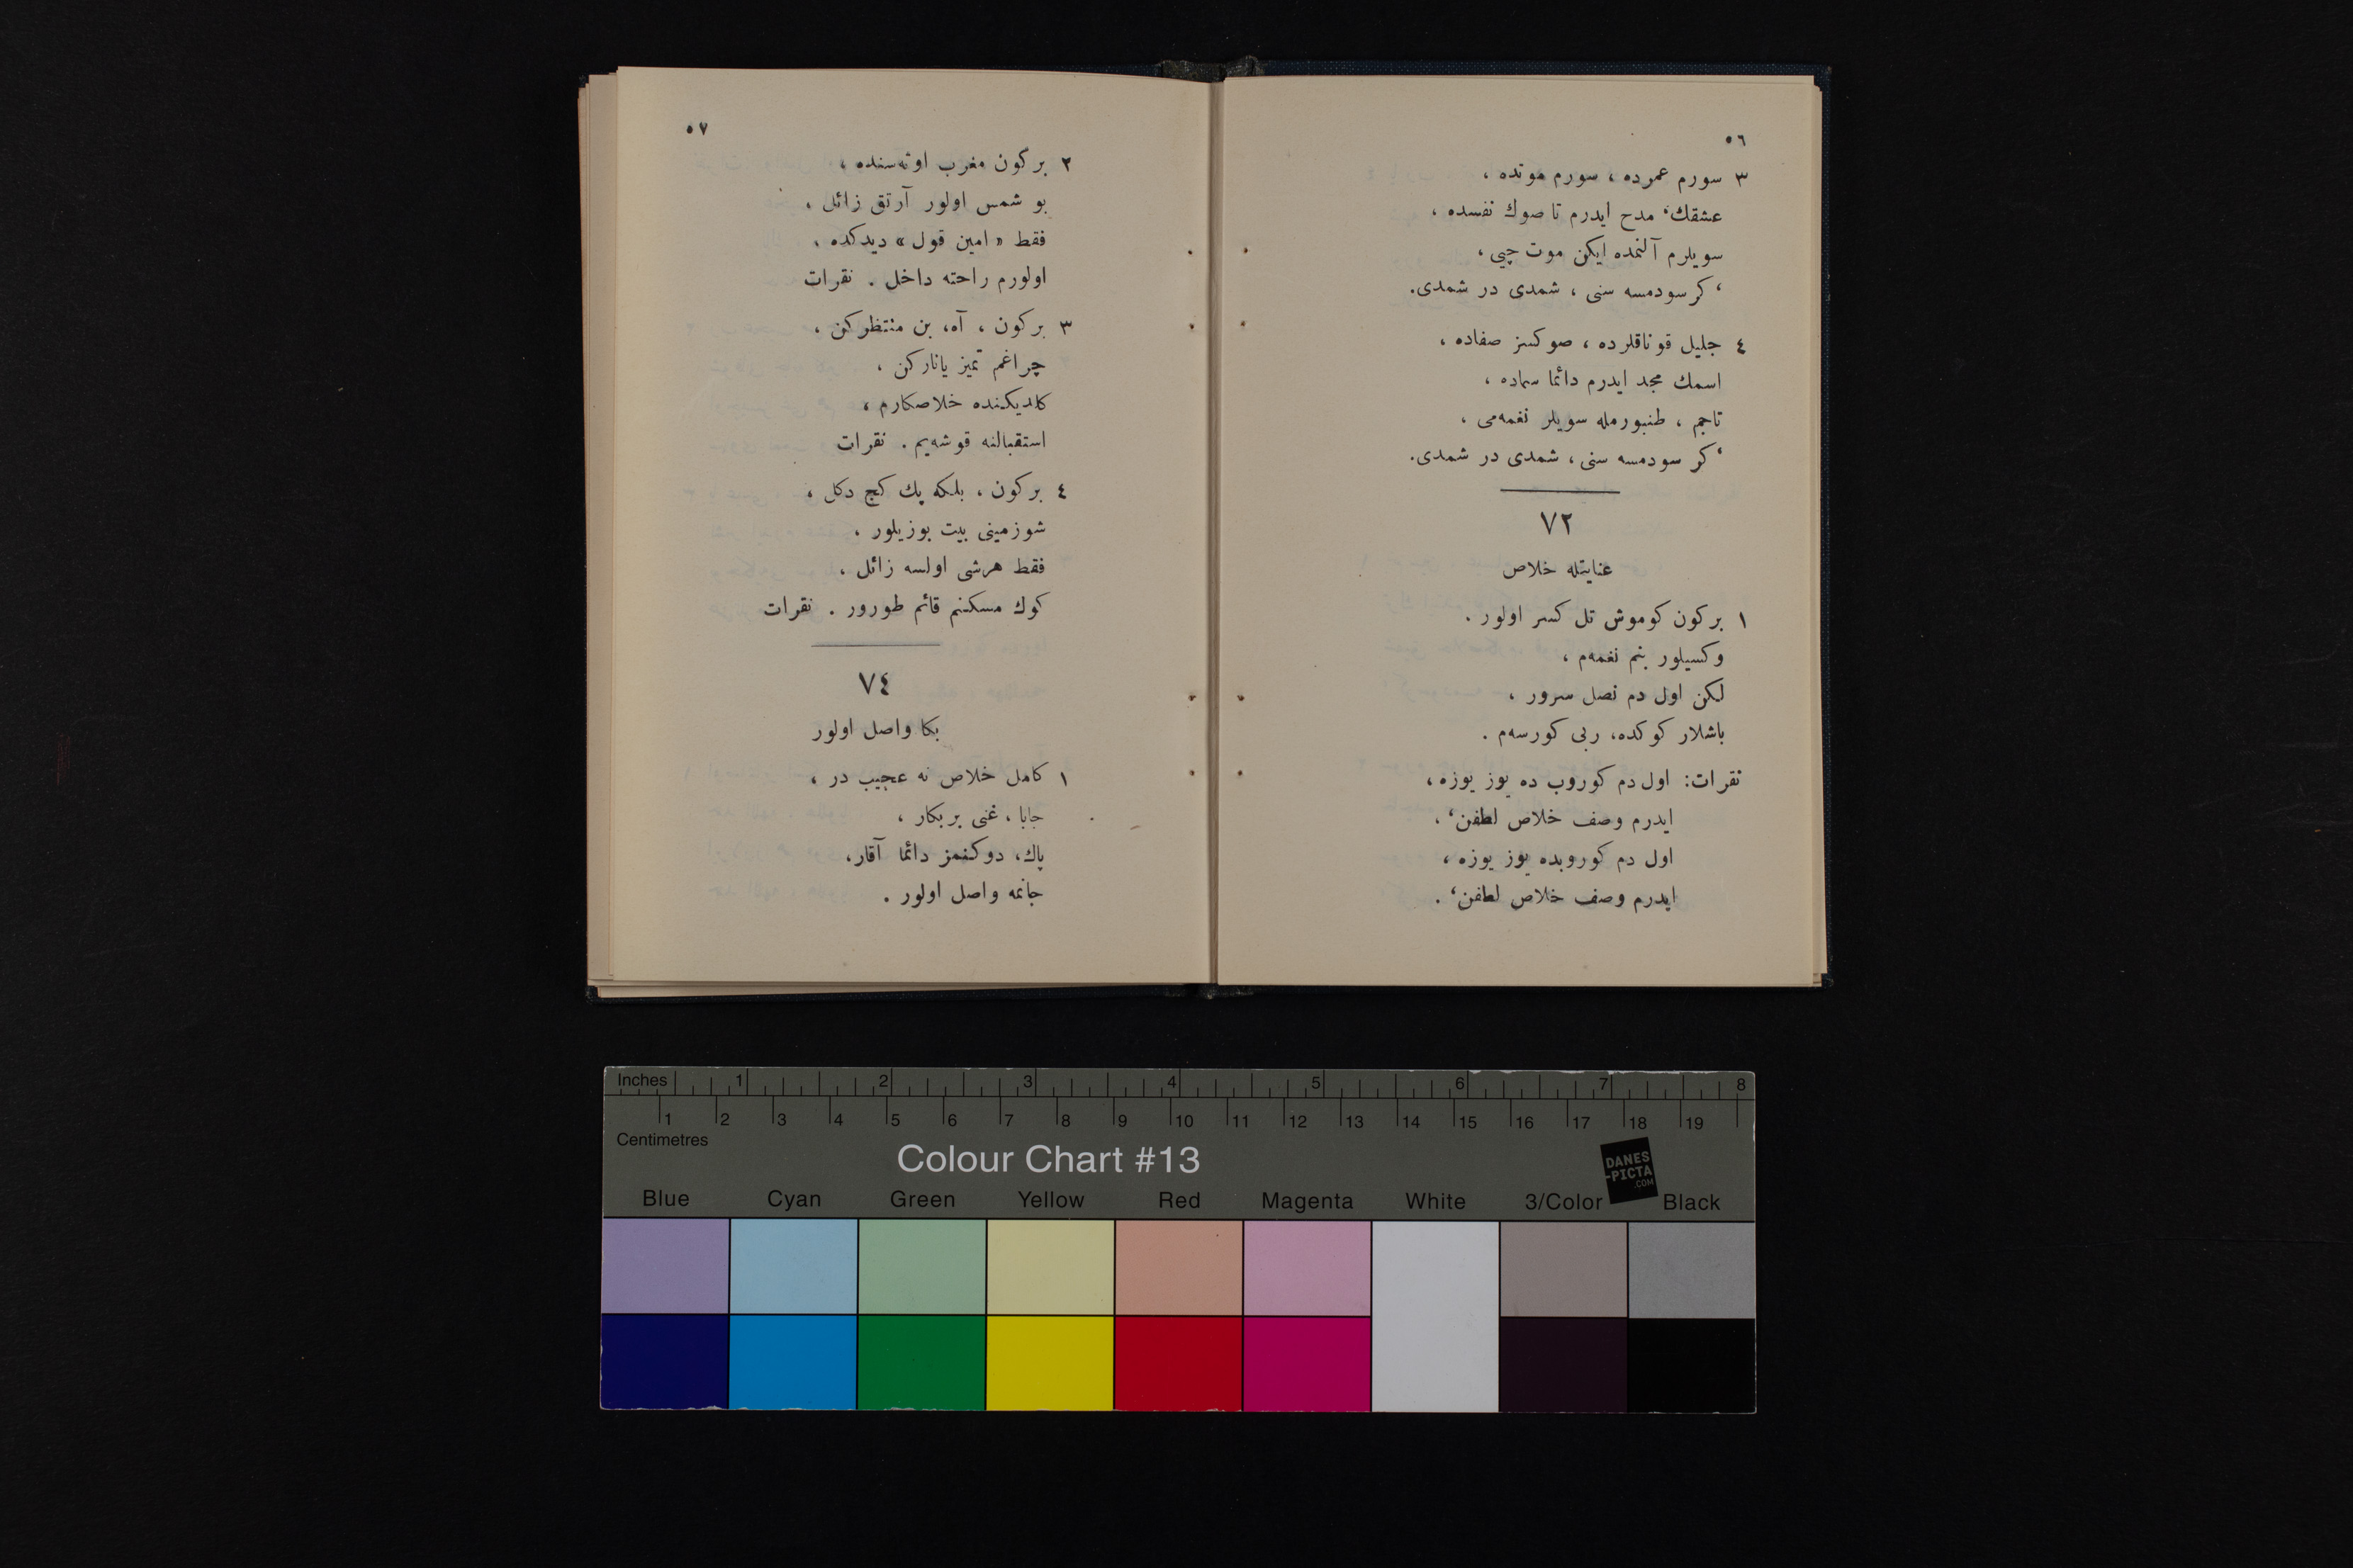 ٥٦
٣ سورم عمرده ، سورم موتده ،
عشقك‘ مدح ايدرم تا صوك نفسده ،
سويلرم آلنمده ايكن موت چيى ،
‘كر سودمسه سنى ، شمدى در شمدى.
٤ جليل قوناقلرده ، صوكسز صفاده ،
اسمك مجد ايدرم دائما سماده ،
تاجم ، طنبورمله سويلر نغمه‌مى ،
‘كر سودمسه سنى ، شمدى در شمدى.
٧٢
عنايتله خلاص
١ بركون كوموش تل كسر اولور .
وكسيلور بنم نغمه‌م ،
لكن اول دم نصل سرور ،
باشلار كوكده، ربى كورسه‌م .
نقرات: اول دم كوروب ده يوز يوزه ،
ايدرم وصف خلاص لطفن‘ .
اول دم كوروبده يوز يوزه ،
ايدرم وصف خلاص لطفن‘ .
٥٧
٢ بركون مغرب اوته‌سنده ،
بو شمس اولور آرتق زائل ،
فقط « امين قول » ديدكده ،
اولورم راحته داخل . نقرات
٣ بركون ، آه، بن منتظركن ،
چراغم تميز ياناركن ،
كلديكنده خلاصكارم ،
استقبالنه قوشه‌يم . نقرات
٤ بركون ، بلكه پك كج دكل ،
شو زمينى بيت بوزيلور ،
فقط هرشى اولسه زائل ،
كوك مسكنم قائم طورور . نقرات
٧٤
بكا واصل اولور
١ كامل خلاص نه عجيب در ،
جابا ، غنى بر بكار ،
پاك، دوكنمز دائما آقار،
جانمه واصل اولور .
Inches 1 2 3 4 5 6 7 8
1 2 3 4 5 6 7 8 9 10 11 12 13 14 15 16 17 18 19
Centimetres
Colour Chart #13
DANES
-PICTA
.COM
Blue Cyan Green Yellow Red Magenta White 3/Color Black